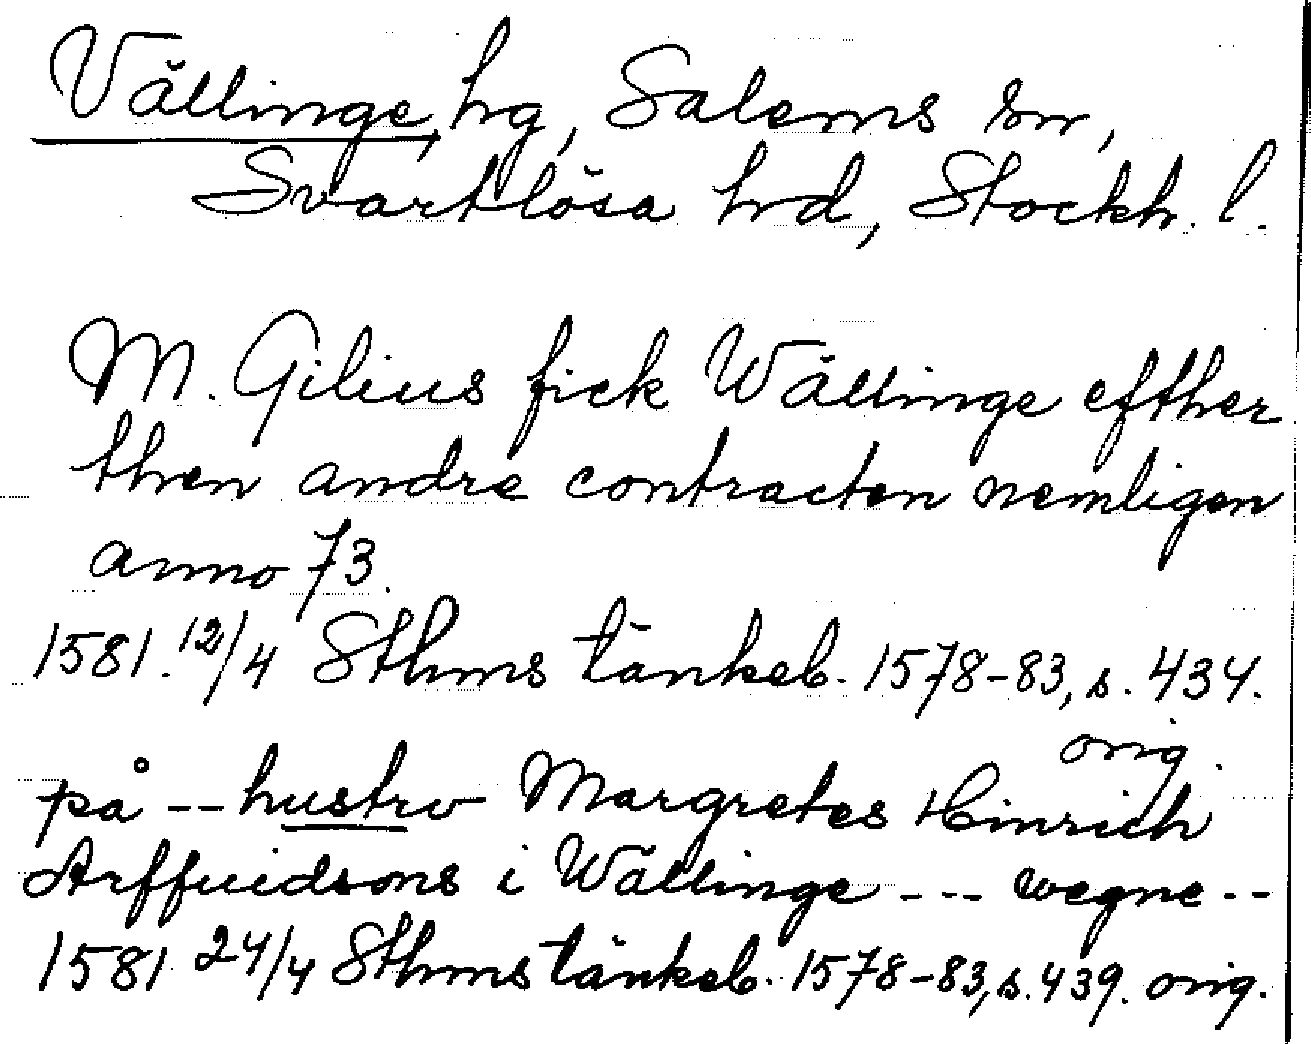 Vällinge, hg, Salems sn,
Svartlösa hrd, Stockh. l.
M. Gilius fick Wällinge efther
then andre contracten nemligen
anno 73.
1581.12/4 Sthms tänkeb. 1578-83, s. 434.
orig.
på -- hustrv Margretes Hinrich
Arffuidsons i Wällinge --- wegne --
1581 24/4 Sthms tänkeb. 1578-83, s. 439. orig.